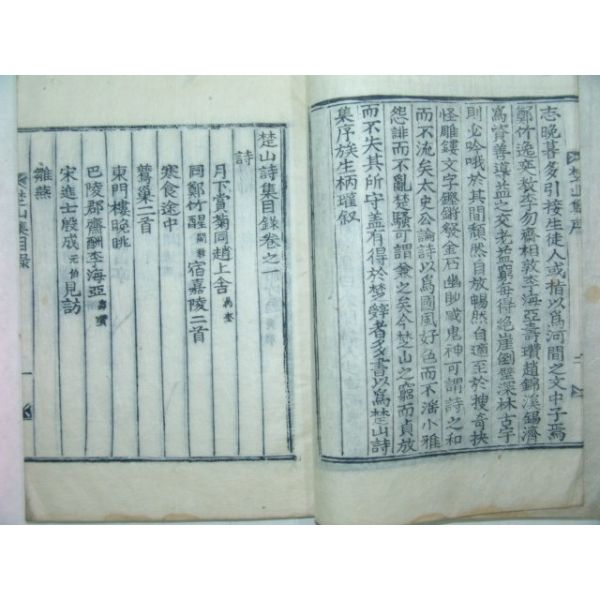 志晩暮多引接生徒人或楷以爲河間之文中子焉
鄭竹逸奕教李勿齋相敦李海亞壽瓚趙錦溪錫濟
爲賞善導益之交老益窮每得絶崖倒壁深林古宇
則必吟哦於其間頽然自放暢然自適至於搜奇抉
怪雕鏤文字鏗鏘發金石幽眇感鬼神可謂詩之和
而不流矣太史公論詩以爲國風好色而不潘小雅
怨誹而不亂楚騷可謂兼之矣今楚山之窮而貞放
而不失其所守盖有得於楚辭者多書以爲楚山詩
集序族生柄瓘叙
楚山集序
楚山詩集目錄卷之一
詩
月下賞菊同趙上舍
同鄭竹醒 宿嘉陵二首
寒食途中
鷰巢二首
東門樓晩眺
巴陵郡齋酬李海亞 壽瓚
宋進士殷成 元伯 見訪
雛燕
楚山集目錄
一